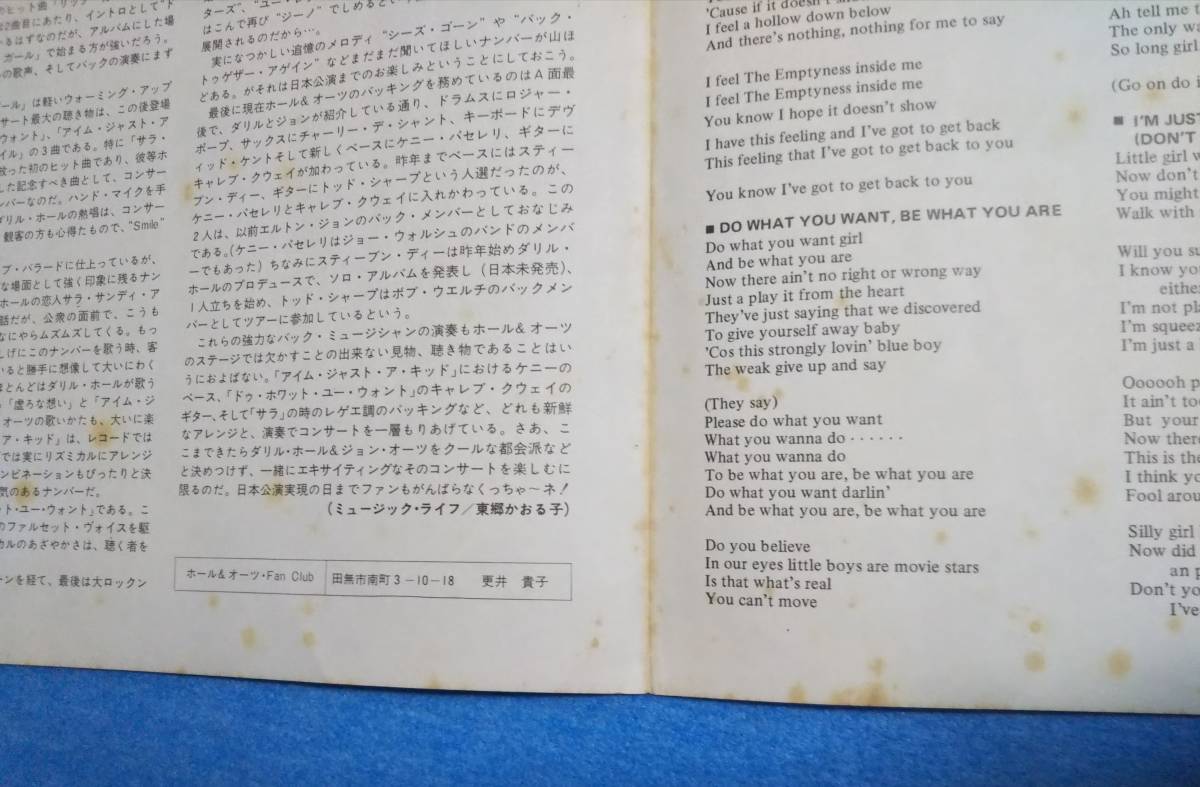 のヒット曲「リッチ・
2曲目にあたり、イントロとして"ド
いるはずなのだが、アルバムにした場
ガール」で始まる方が強いだろう。
の歌声、そしてバックの演奏にまず
ール」は軽いウォーミング・アップ
サート最大の聴き物は、この後登場
ウォント」、「アイム・ジャスト・ア
イル」の3曲である。特に「サラ・
放った初のヒット曲であり、彼等ホ
した記念すべき曲として、コンサー
ンバーなのだ。ハンド・マイクを手
ダリル・ホールの熱唱は、コンサー
観客の方も心得たもので、"Smile"
プ・バラードに仕上っているが、
な場面として強く印象に残るナン
ホールの恋人サラ・サンディ・ア
話だが、公衆の面前で、こうも
なにやらムズムズしてくる。もっ
しげにこのナンバーを歌う時、客
いると勝手に想像して大いにわく
ほとんどはダリル・ホールが歌う
「虚ろな想い」と「アイム・ジ
オーツの歌いかたも、大いに楽
ア・キッド」は、レコードでは
では実にリズミカルにアレンジ
ンビネーションもぴったりと決
気のあるナンバーだ。
ット・ユー・ウォント」である。こ
のファルセット・ヴォイスを駆
カルのあざやかさは、聴く者を
ーンを経て、最後は大ロックン
ターズ"、"ユー・
はこんで再び"ジーノ"でしめるという
展開されるのだから…。
実になつかしい追憶のメロディ"シーズ・ゴーン"や"バック・
トゥゲザー・アゲイン"などまだまだ聞いてほしいナンバーが山ほ
どある。がそれは日本公演までのお楽しみということにしておこう。
最後に現在ホール&オーツのバッキングを務めているのはA面最
後で、ダリルとジョンが紹介している通り、ドラムスにロジャー・
ポープ、サックスにチャーリー・デ・シャント、キーボードにデヴ
ィッド・ケントそして新しくベースにケニー・パセレリ、ギターに
キャレブ・クウェイが加わっている。昨年までベースにはスティー
ブン・ディー、ギターにトッド・シャープという人選だったのが、
ケニー・パセレリとキャレブ・クウェイに入れかわっている。この
2人は、以前エルトン・ジョンのバック・メンバーとしておなじみ
である。(ケニー・パセレリはジョー・ウォルシュのバンドのメンバ
ーでもあった)ちなみにスティーブン・ディーは昨年始めダリル・
ホールのプロデュースで、ソロ・アルバムを発表し(日本未発売)、
1人立ちを始め、トッド・シャープはボブ・ウエルチのバックメン
バーとしてツアーに参加しているという。
これらの強力なバック・ミュージシャンの演奏もホール&オーツ
のステージでは欠かすことの出来ない見物、聴き物であることはい
うにおよばない。「アイム・ジャスト・ア・キッド」におけるケニーの
ベース、「ドゥ・ホワット・ユー・ウォント」のキャレブ・クウェイの
ギター、そして「サラ」の時のレゲエ調のバッキングなど、どれも新鮮
なアレンジと、演奏でコンサートを一層もりあげている。さあ、こ
こまできたらダリル・ホール&ジョン・オーツをクールな都会派など
と決めつけず、一緒にエキサイティングなそのコンサートを楽しむに
限るのだ。日本公演実現の日までファンもがんばらなくっちゃ〜ネ!
(ミュージック・ライフ/東郷かおる子)
ホール&オーツ・Fan Club 田無市南町3-10-18 更井 貴子
'Cause if it doesn't
I feel a hollow down below
And there's nothing, nothing for me to say
I feel The Emptyness inside me
I feel The Emptyness inside me
You know I hope it doesn't show
I have this feeling and I've got to get back
This feeling that I've got to get back to you
You know I've got to get back to you
■ DO WHAT YOU WANT, BE WHAT YOU ARE
Do what you want girl
And be what you are
Now there ain't no right or wrong way
Just a play it from the heart
They've just saying that we discovered
To give yourself away baby
'Cos this strongly lovin' blue boy
The weak give up and say
(They say)
Please do what you want
What you wanna do ······
What you wanna do
To be what you are, be what you are
Do what you want darlin'
And be what you are, be what you are
Do you believe
In our eyes little boys are movie stars
Is that what's real
You can't move
Ah tell me t
The only wa
So long girl
(Go on do i
■ I'M JUST
(DON'T
Little girl w
Now don't
You might
Walk with
Will you su
I know yo
either
I'm not pla
I'm squeez
I'm just a
Oooooh p
It ain't too
But your
Now there
This is the
I think yo
Fool arou
Silly girl
Now did
an p
Don't yo
I've